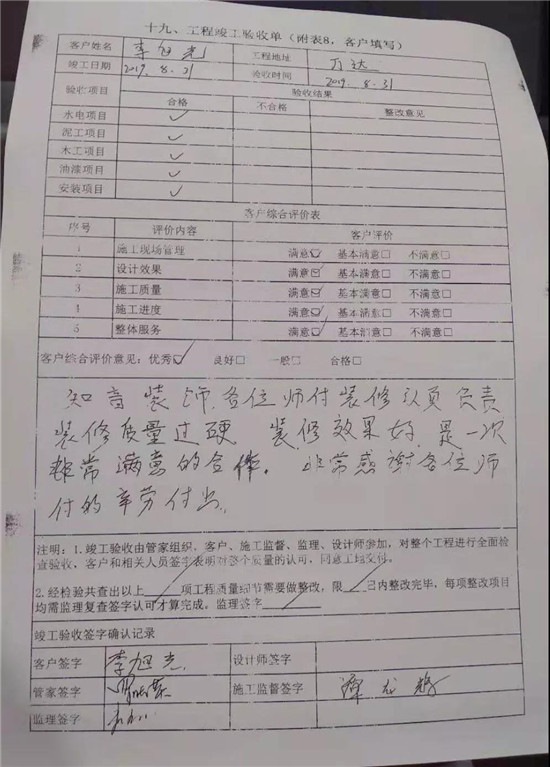 十九、工程竣工验收单（附表8，客户填写）
客户姓名 李旭光 工程地址 万达
竣工日期 2019.8.31 验收时间 2019.8.31
验收项目 验收结果
合格 不合格 整改意见
水电项目 ✓
泥工项目 ✓
木工项目 ✓
油漆项目 ✓
安装项目 ✓
客户综合评价表
序号 评价内容 客户评价
1 施工现场管理 满意☑ 基本满意□ 不满意□
2 设计效果 满意☑ 基本满意□ 不满意□
3 施工质量 满意☑ 基本满意□ 不满意□
4 施工进度 满意☑ 基本满意□ 不满意□
5 整体服务 满意☑ 基本满意□ 不满意□
客户综合评价意见：优秀☑ 良好□ 一般□ 合格□
知音装饰,各位师付装修认真负责
装修质量过硬 装修效果好,是一次
非常满意的合作。非常感谢各位师
付的辛劳付出。
注明：1.竣工验收由管家组织、客户、施工监督、监理、设计师参加，对整个工程进行全面检
查验收，客户和相关人员签字表明对整个质量的认可，同意工地交付。
2.经检验共查出以上____项工程质量细节需要做整改，限____日内整改完毕，每项整改项目
均需监理复查签字认可才算完成。监理签字____
竣工验收签字确认记录
客户签字 李旭光 设计师签字
管家签字 施工监督签字
监理签字